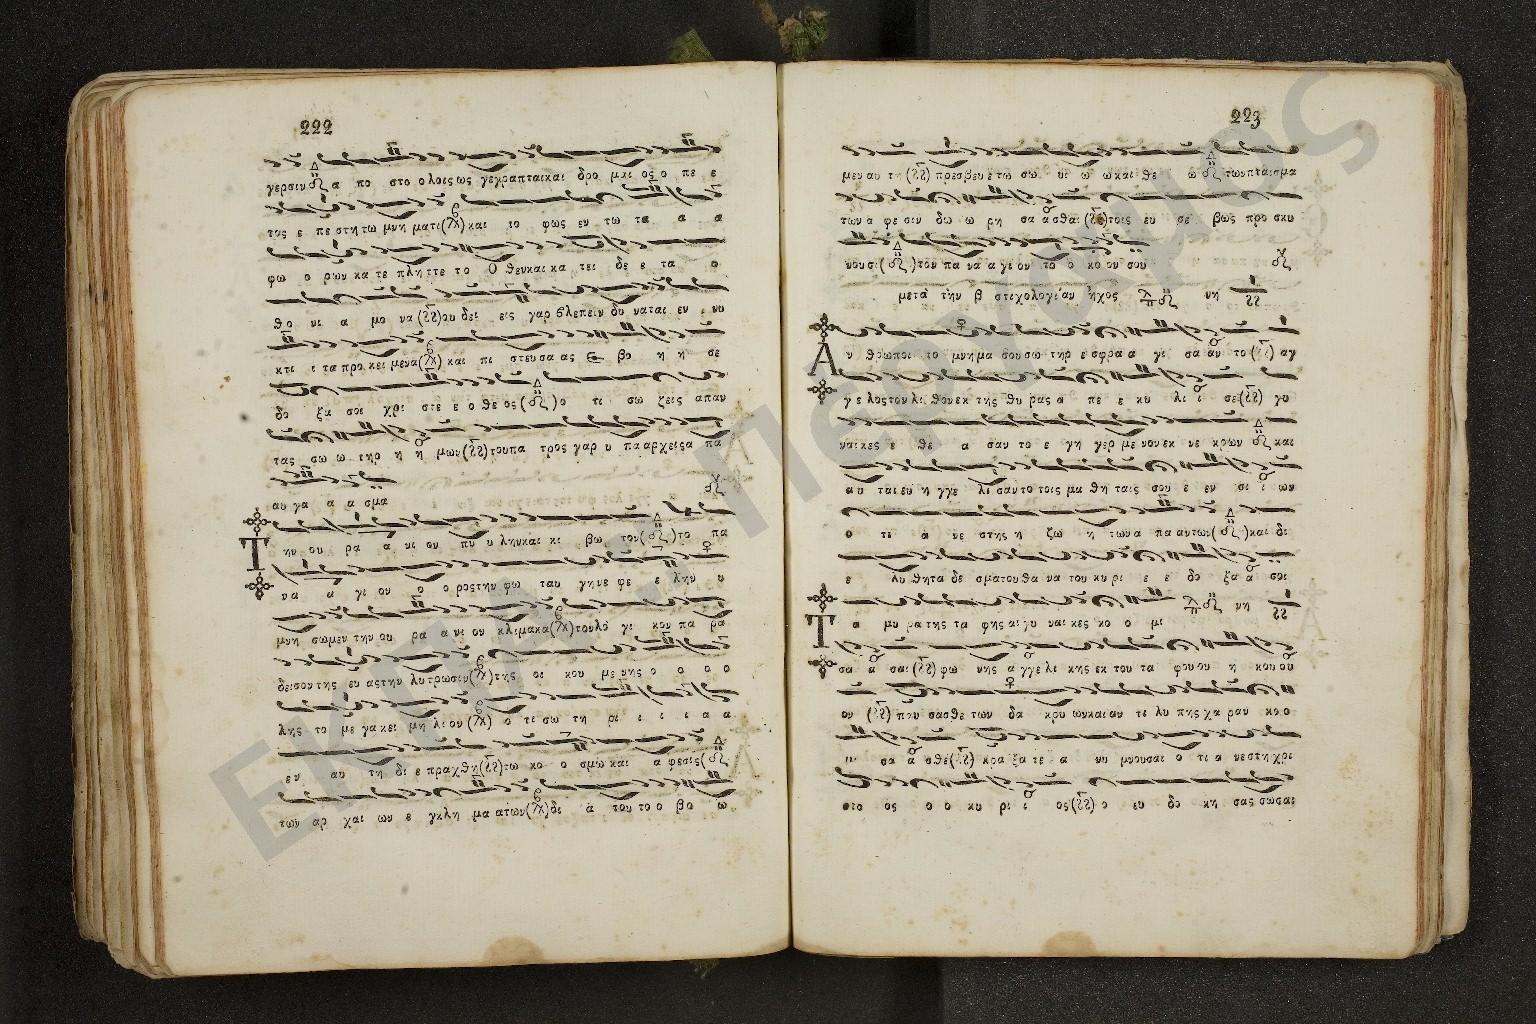 222
γερσιν α πο στο ολοις ως γεγραπται και δρο μαι ος ο πε ε
τος ε πε στη τω μνη ματι και ιο φως εν τω τα α α
φω ο ρων κα τε πλητ τε το Ο θεν και κα τει δε ε τα ο
θο νι α μο να ου δει εις γαρ βλεπειν δυ ναται εν νυ
κτι ι τα προ κει μενα και πι στευσα ας ε βο η η σε
δο ξα σοι χρι στε ε ο θε ος ο τι σω ζεις απαν
τας σω ω τηρ η η μων του πα τρος γαρ υ πα αρχεις α πα
αυ γα α α σμα
Τ ην ου ρα α νι ον πυ υ λην και κι βω τον το πα
να α γι ον ο ο ρος την φω ταυ γη νε φε ε λην υ
μνη σωμεν την ου ρα α νι ον κλιμακα τον λο γι κον πα ρα
δεισον της ευ ας την λυ τρωσιν της οι κου με νης ο ο ο ο
λης το με γα κει μη λι ον ο τι σω τη ρι ι ι ι α α
εν αυ τη δι ε πραχθη τω κο ο σμω και α φεσις
των αρ χαι ων ε γκλη μα ατων δι α του το ο βο ω
223
μεν αυ τη πρεσβευ ε τω σω υι ω ω και θε ω των πταισμα
των α φε σιν δω ω ρη σα α σθαι τοις ευ σε βως προ σκυ
νουσι τον πα να α γι ον το ο κο ον σου
μετὰ τὴν β στιχολογίαν ἦχος νη
Α ν θρωποι το μνημα σου σω τηρ ε σφρα α γι σα αν το αγ
γε λος τον λι θον εκ της θυ ρας α πε ε κυ λι ι σε γυ
ναι κες ε θε α σαν το ε γη γερ με νον εκ νε κρων και
αυ ται ευ η γγε λι σαντο τοις μα θη ταις σου ε εν σι ι ων
ο τι α νε στης η ζω η των α πα αντων και δι
ε λυ θη τα δε σμα του θα να του κυ ρι ε ε δο ξα α σοι
Τ α μυ ρα της τα φης αι γυ ναι κες κο ο μι νη
σα α σαι φω νης α γγε λι κης εκ του τα φου ου η κου ου
ον παυ σασθε των δα κρυ ων και αν τι λυ πης χα ραν κο ο
μι σα α σθε κρα ξα τε α νυ μνουσαι ο τι α νεστη χρι
στο ος ο ο κυ ρι ι ος ο ευ δο κη σας σωσαι